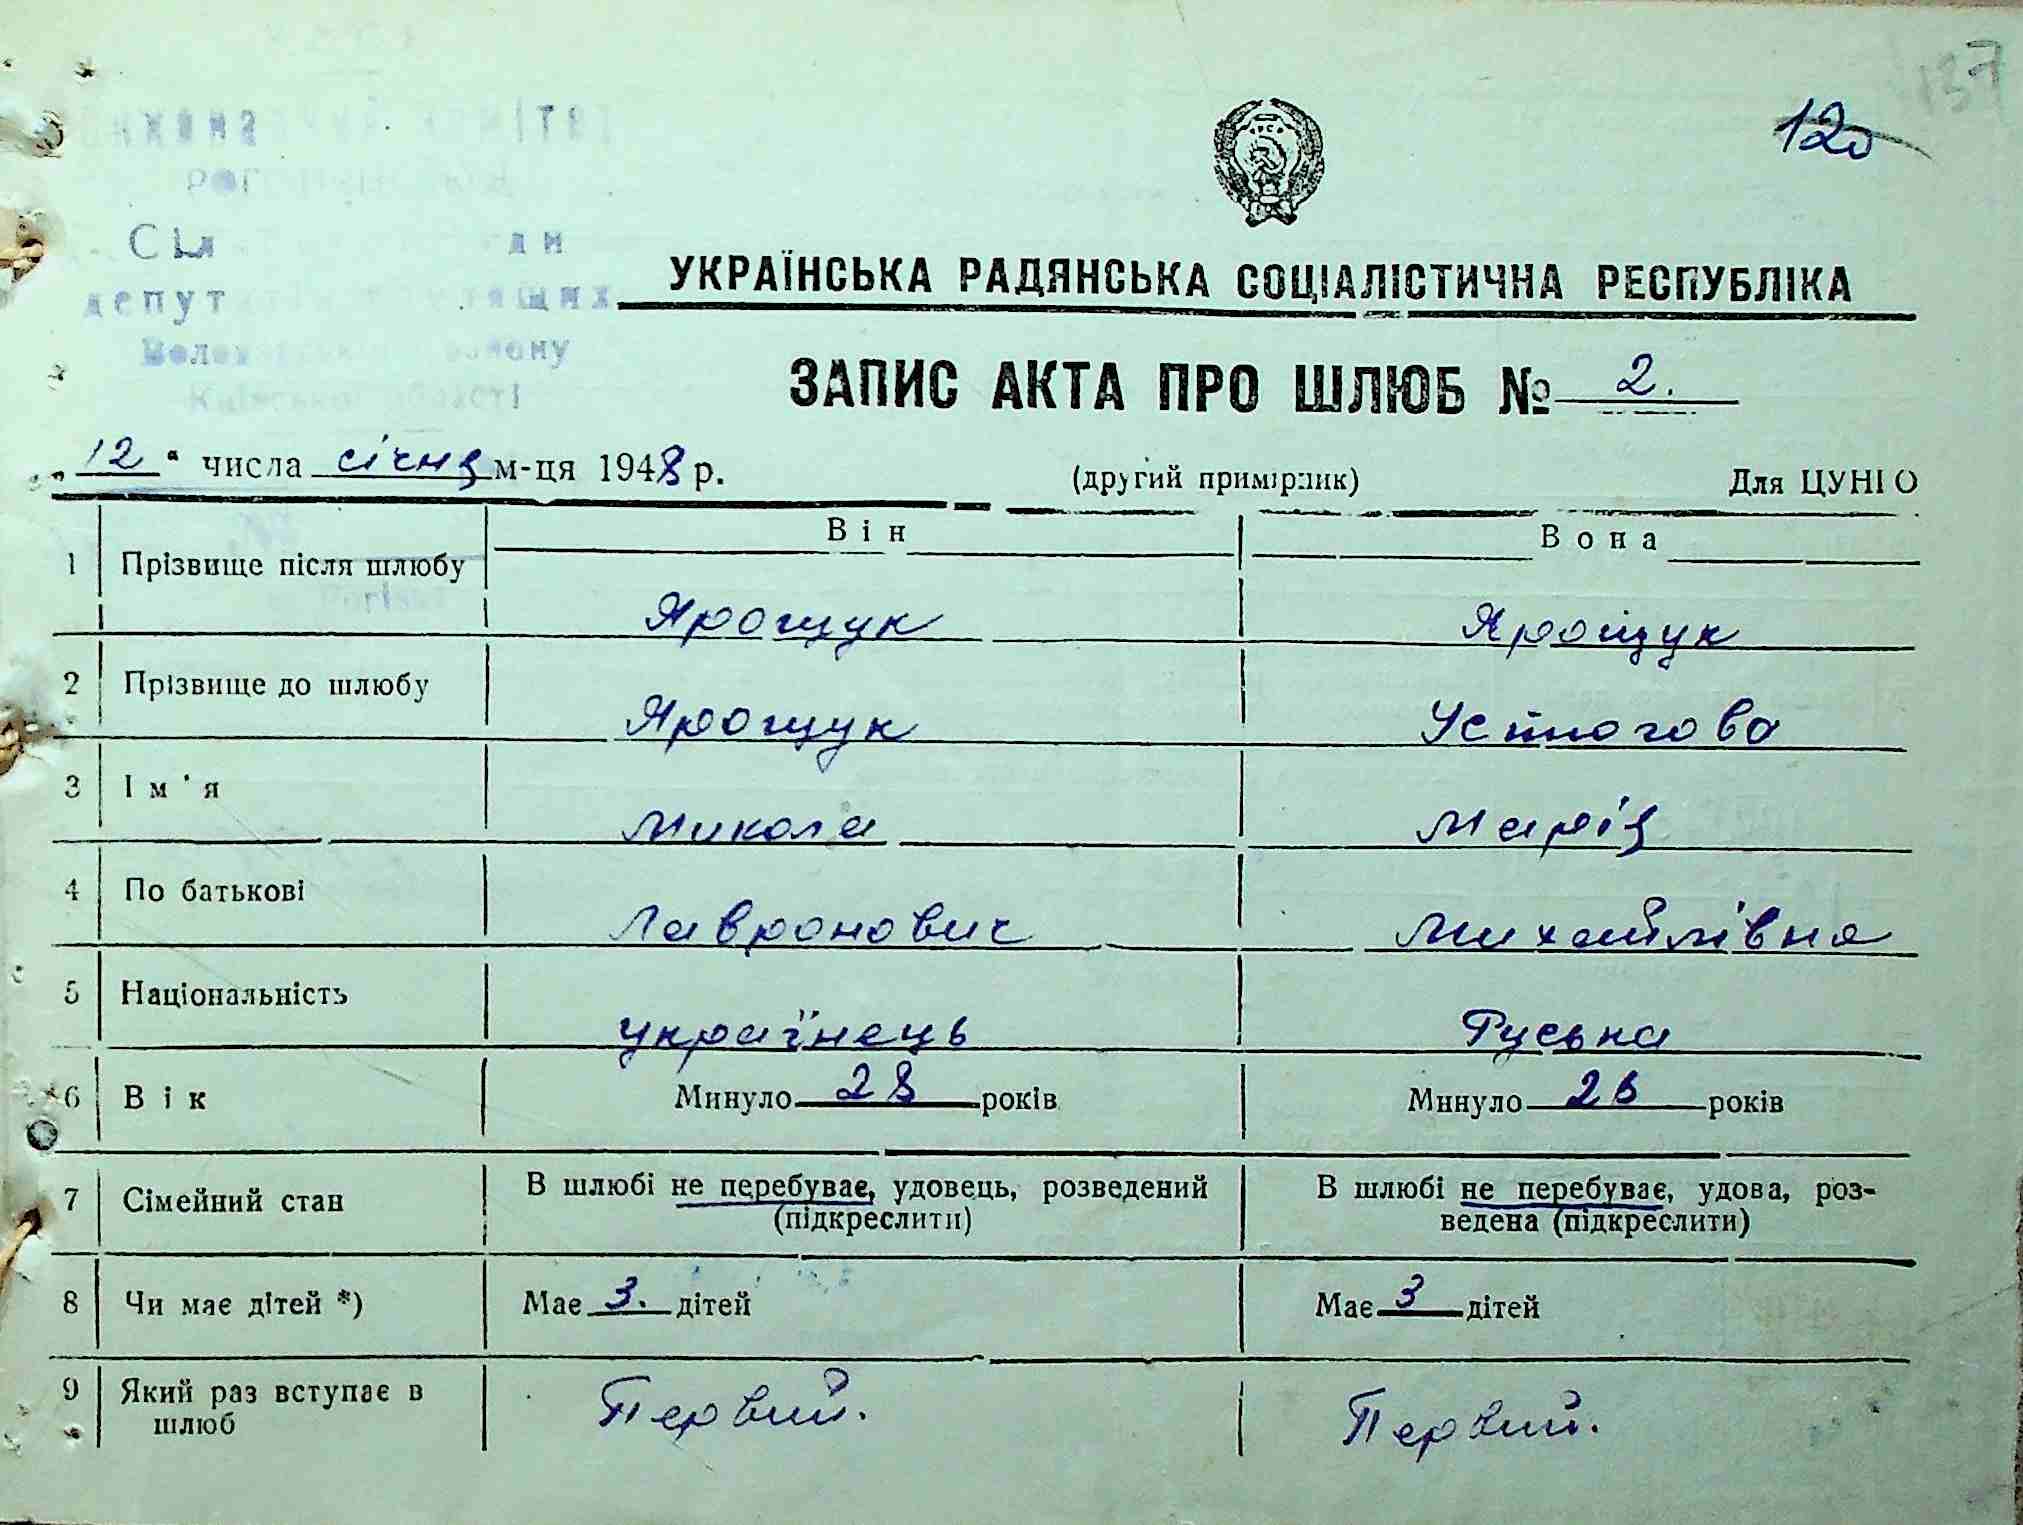 137
120
виконавчий комітет
Сіл
депут трудящих
району
Київської області
УКРАЇНСЬКА РАДЯНСЬКА СОЦІАЛІСТИЧНА РЕСПУБЛІКА
ЗАПИС АКТА ПРО ШЛЮБ № 2.
„12“ числа січня м-ця 1948 р. (другий примірник) Для ЦУНГО
Він Вона
1 Прізвище після шлюбу Ярощук Ярощук
2 Прізвище до шлюбу Ярощук Устюгова
3 Ім'я Микола Марія
4 По батькові Лавронович Михайлівна
5 Національність українець Руська
6 Вік Минуло 28 років Минуло 26 років
7 Сімейний стан В шлюбі не перебуває, удовець, розведений В шлюбі не перебуває, удова, роз-
(підкреслити) ведена (підкреслити)
8 Чи має дітей *) Має 3. дітей Має 3 дітей
9 Який раз вступає в Первий. Первий.
шлюб